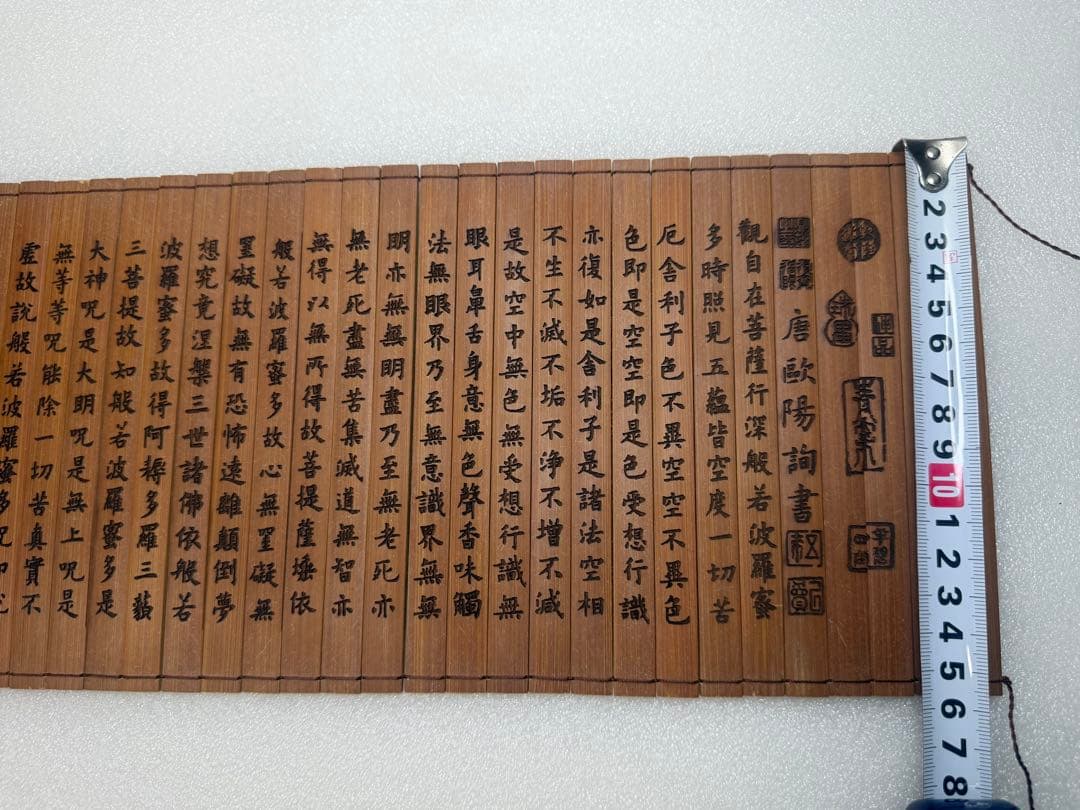 唐歐陽詢書
觀自在菩薩行深般若波羅蜜
多時照見五蘊皆空度一切苦
厄舍利子色不異空空不異色
色即是空空即是色受想行識
亦復如是舍利子是諸法空相
不生不滅不垢不淨不增不減
是故空中無色無受想行識無
眼耳鼻舌身意無色聲香味觸
法無眼界乃至無意識界無無
明亦無無明盡乃至無老死亦
無老死盡無苦集滅道無智亦
無得以無所得故菩提薩埵依
般若波羅蜜多故心無罣礙無
罣礙故無有恐怖遠離顛倒夢
想究竟涅槃三世諸佛依般若
波羅蜜多故得阿耨多羅三藐
三菩提故知般若波羅蜜多是
大神咒是大明咒是無上咒是
無等等咒能除一切苦真實不
虛故說般若波羅蜜多咒即說
2 3 4 5 6 7 8 9 10 1 2 3 4 5 6 7 8